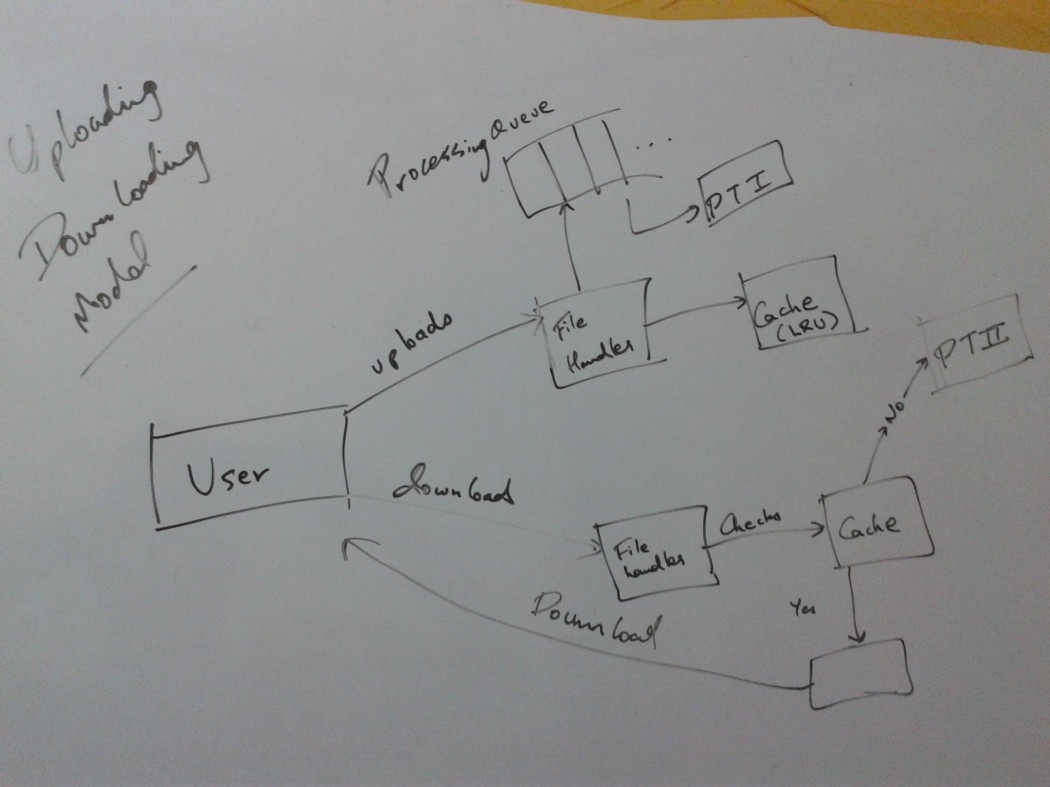 Uploading
Downloading
Model
Processing Queue
...
PT I
uploads
File
Handler
Cache
(LRU)
PT II
No
User
download
File
handler
Checks
Cache
Yes
Download